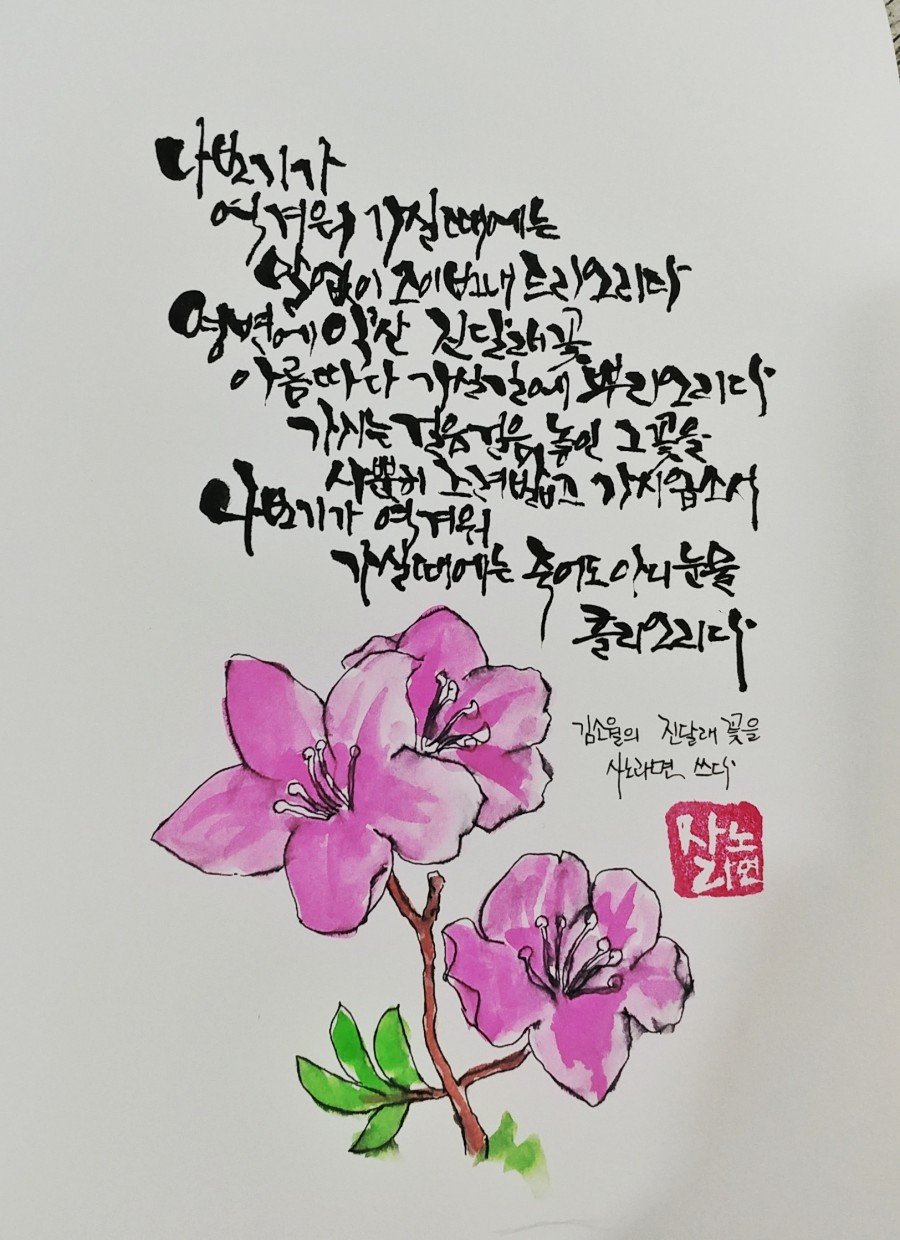 나보기가
역겨워 가실때에는
말없이 고이보내 드리오리다
영변에 약산 진달래꽃
아름따다 가실길에 뿌리오리다
가시는 걸음걸음 놓인 그 꽃을
사뿐히 즈려밟고 가시옵소서
나보기가 역겨워
가실때에는 죽어도 아니 눈물
흘리오리다
김소월의 진달래꽃을
사노라면 쓰다
사노
라면